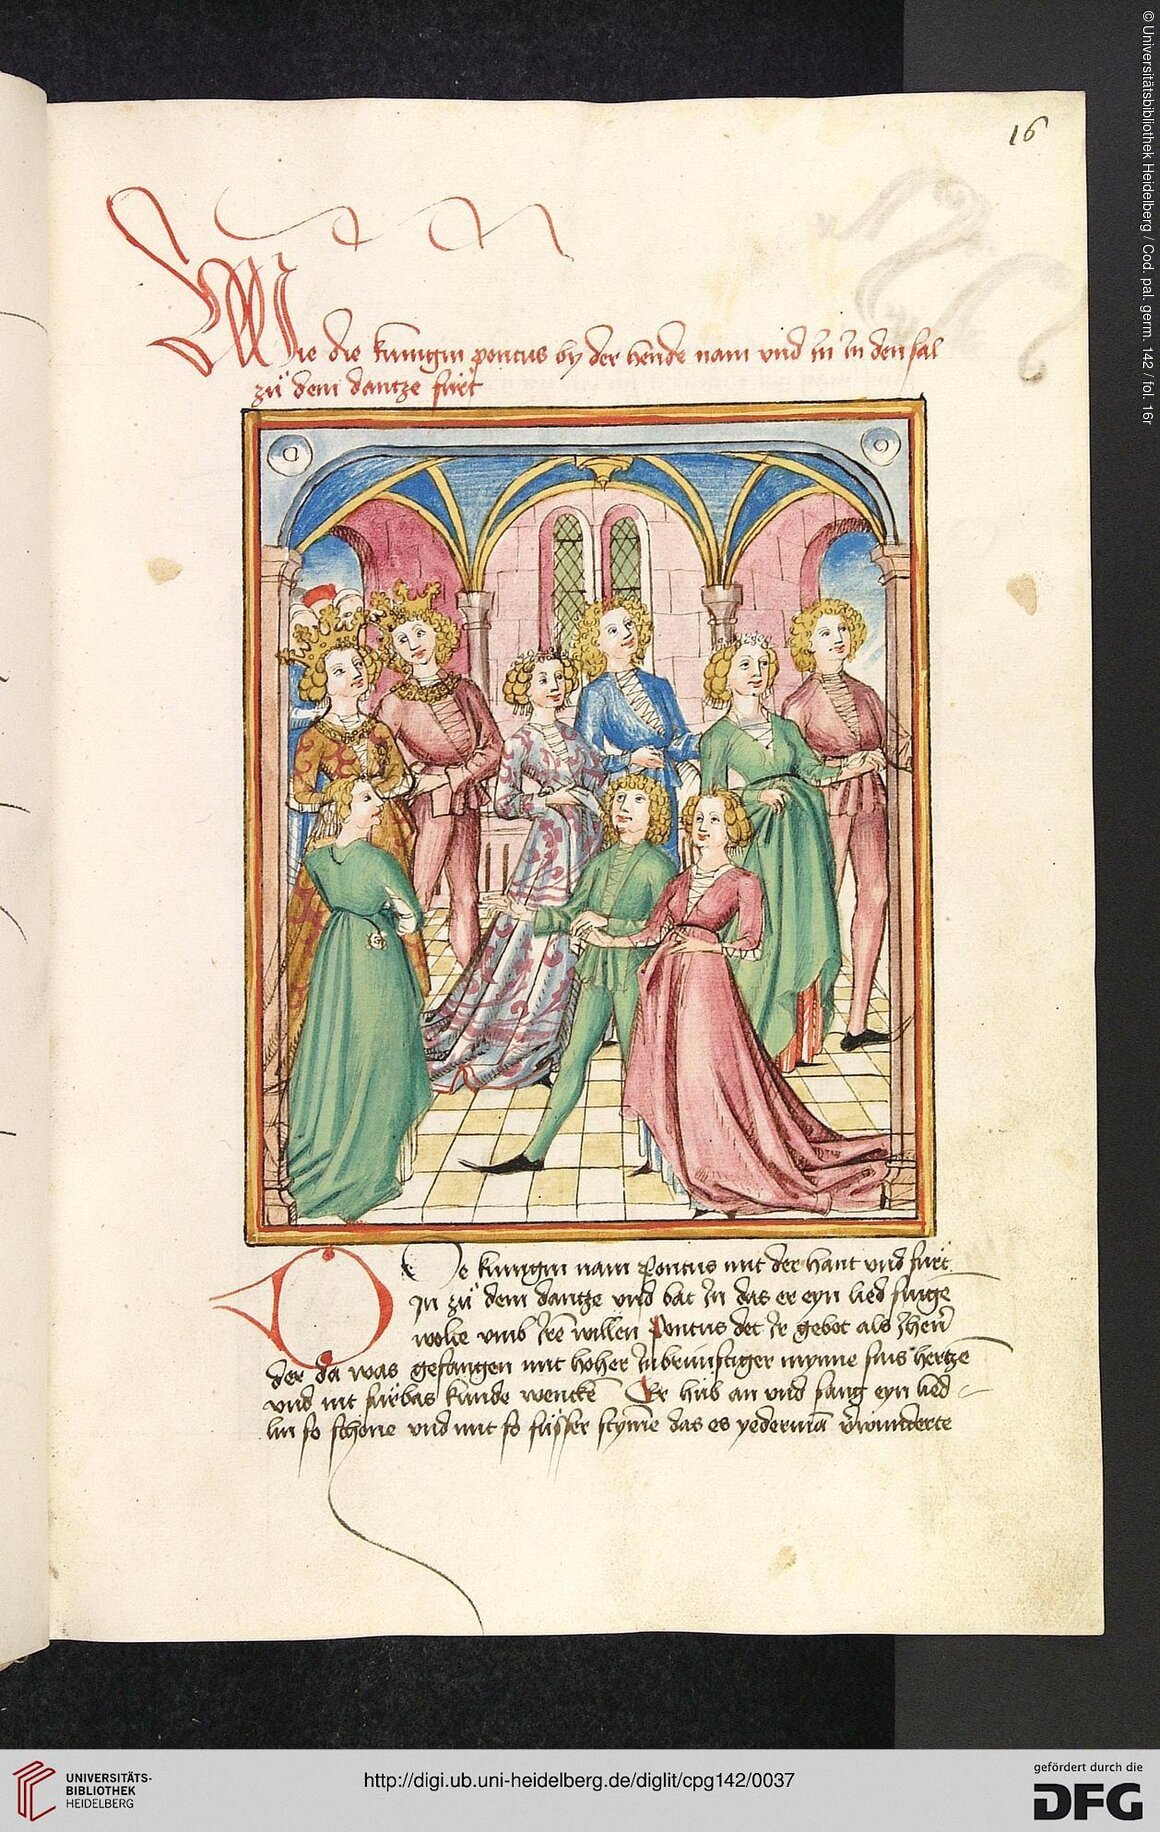 16
Wie die kunigin pontus by der hende nam vnd in in den sal
zů dem dantze fůrt
Die kunigin nam Pontus mit der hant vnd fůrt
in zů dem dantze vnd bat in das er eyn lied singe
wolte vmb irē willen Pontus det ir gebot als
der da was gefangen mit hoher inbrunstiger mynne sins hertze
vnd nit fůrbas kunde wenckē Er hůb an vnd sang eyn lied
lin so schone vnd mit so sůsser stym̄e das es yedermā v̄wunderte
© Universitätsbibliothek Heidelberg / Cod. pal. germ. 142 / fol. 16r
UNIVERSITÄTS-
BIBLIOTHEK
HEIDELBERG
http://digi.ub.uni-heidelberg.de/diglit/cpg142/0037
gefördert durch die
DFG